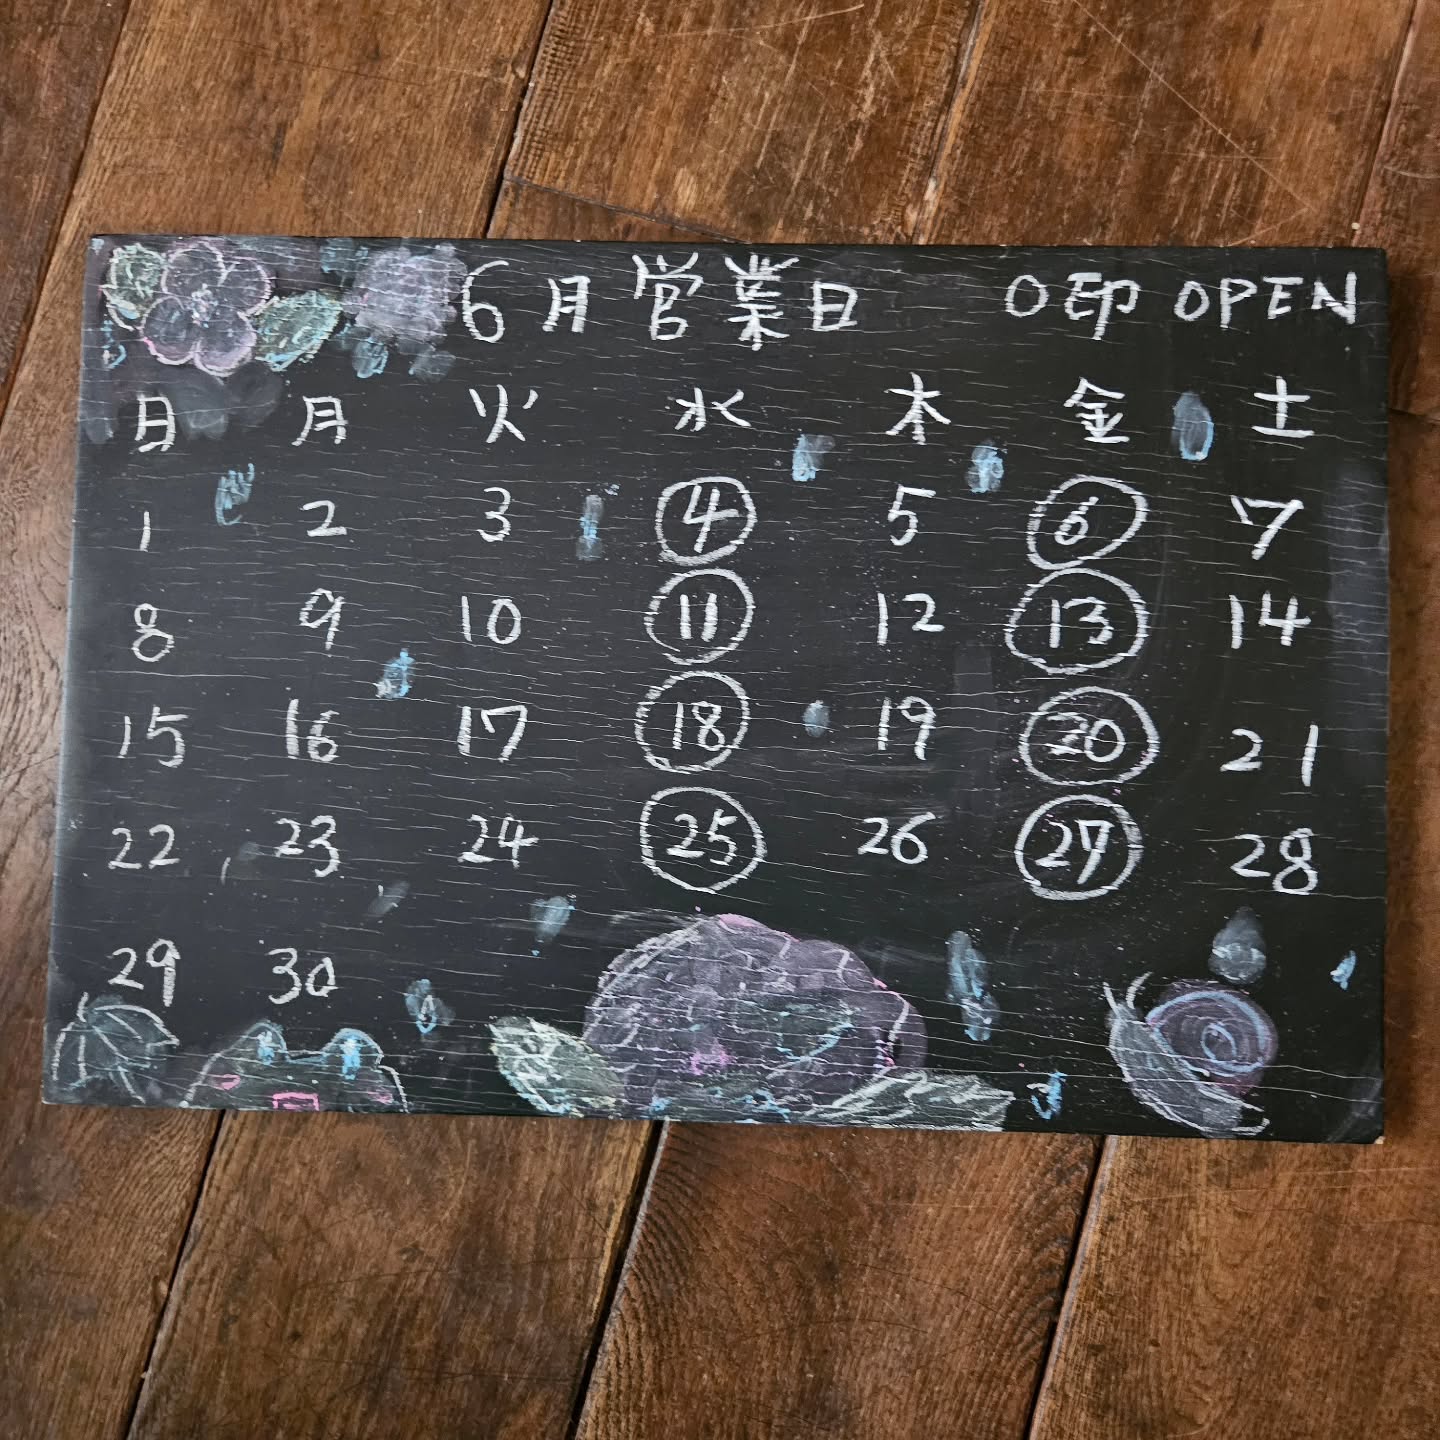 6月営業日 ○印 OPEN
日 月 火 水 木 金 土
1 2 3 ④ 5 ⑥ 7
8 9 10 ⑪ 12 ⑬ 14
15 16 17 ⑱ 19 ⑳ 21
22 23 24 ㉕ 26 ㉗ 28
29 30